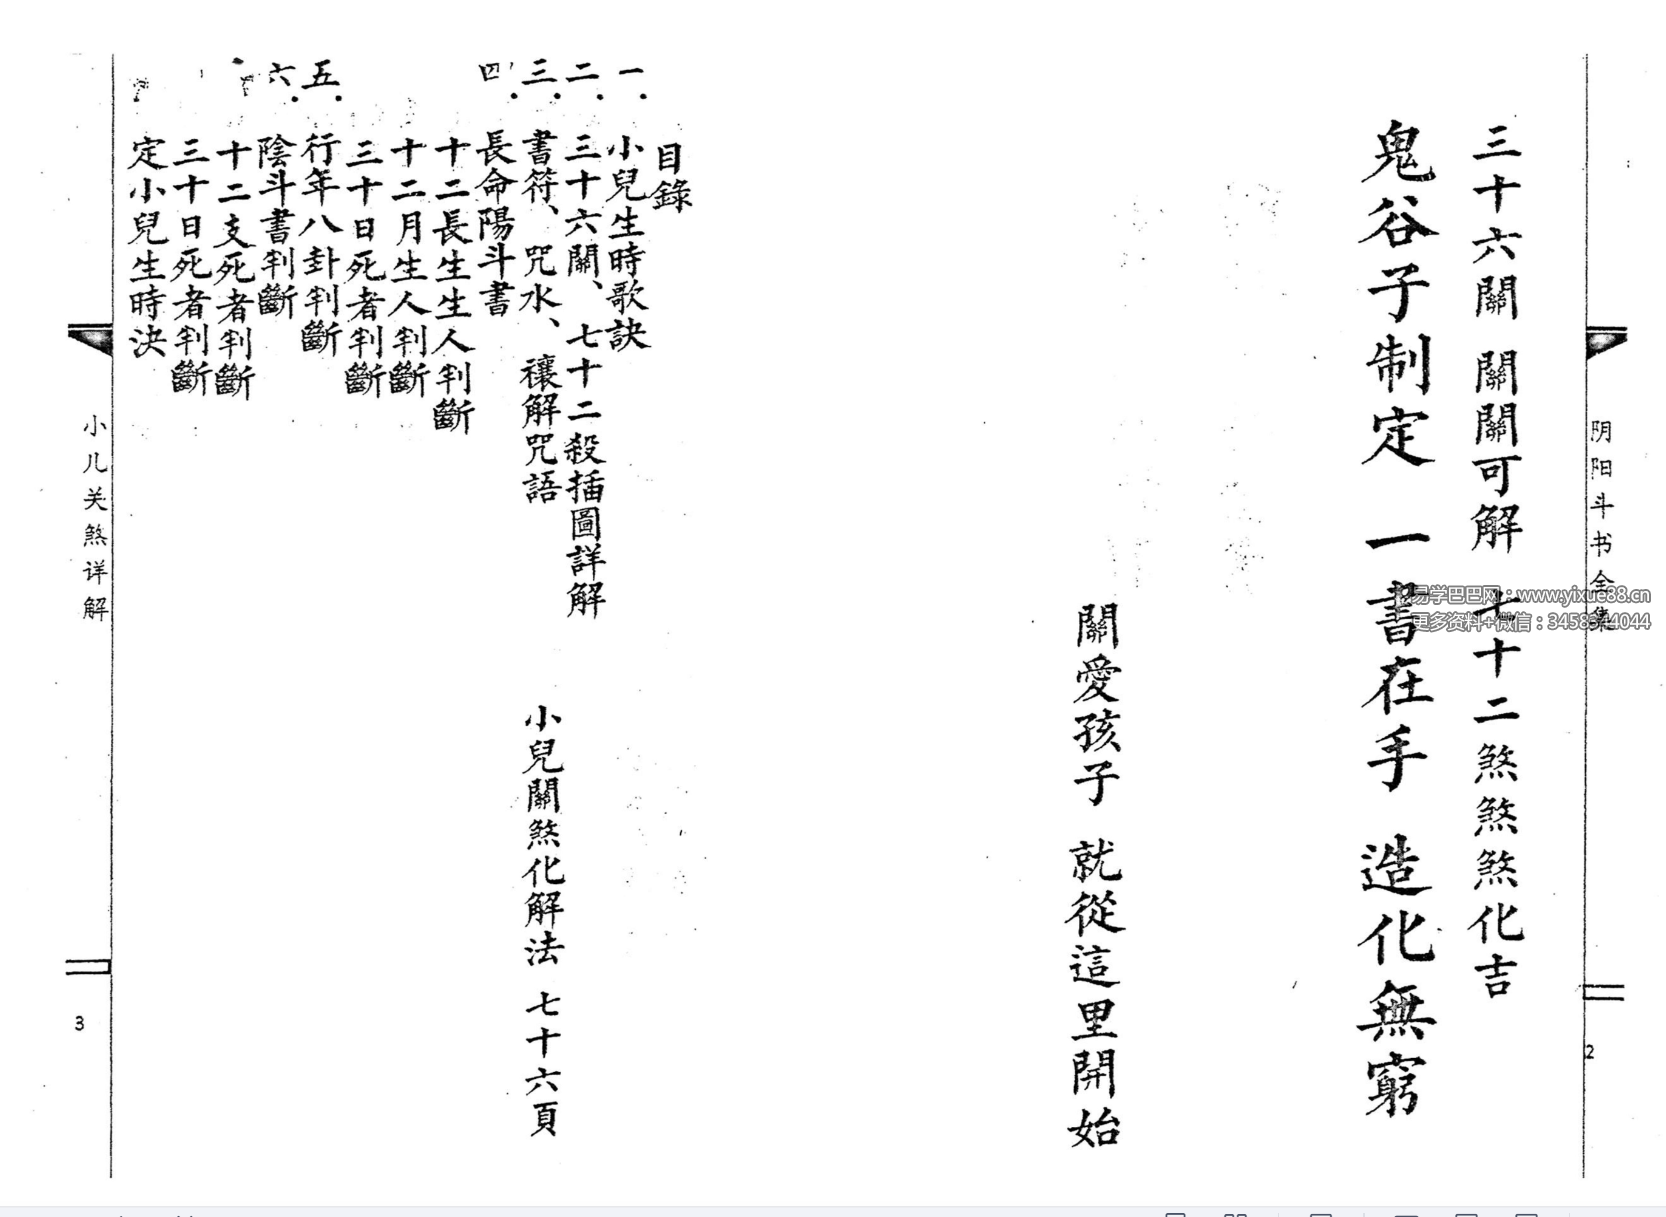 阴阳斗书全集
2
三十六關 關關可解 七十二煞煞煞化吉
鬼谷子制定 一書在手 造化無窮
關愛孩子 就從這里開始
易学巴巴网：www.yixue88.cn
更多资料+微信：3458344044
目錄
一．小兒生時歌訣
二．三十六關、七十二殺插圖詳解
三．書符、咒水、禳解咒語 小兒關煞化解法 七十六頁
四．長命陽斗書
十二長生生人判斷
十二月生人判斷
三十日死者判斷
五．行年八卦判斷
六．陰斗書判斷
十二支死者判斷
三十日死者判斷
定小兒生時決
小儿关煞详解
3